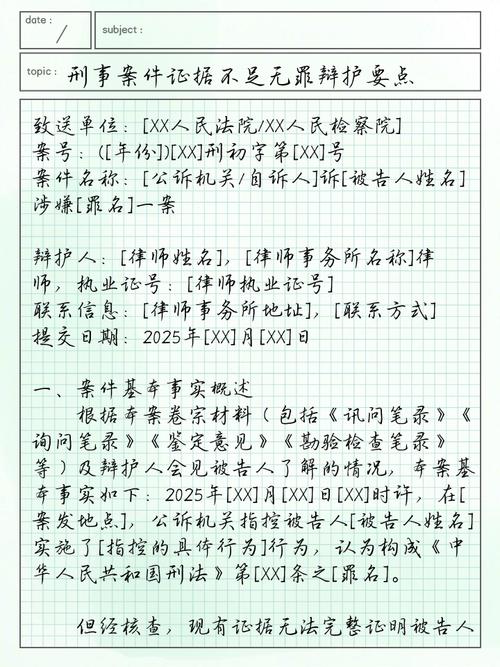 date :
/
subject :
topic : 刑事案件证据不足无罪辩护要点
致送单位：[XX人民法院/XX人民检察院]
案号：([年份])[XX]刑初字第[XX]号
案件名称：[公诉机关/自诉人]诉[被告人姓名]
涉嫌[罪名]一案
辩护人：[律师姓名]，[律师事务所名称]律
师，执业证号：[律师执业证号]
联系信息：[律师事务所地址]，[联系方式]
提交日期：2025年[XX]月[XX]日
一、案件基本事实概述
根据本案卷宗材料（包括《讯问笔录》《
询问笔录》《鉴定意见》《勘验检查笔录》
等）及辩护人会见被告人了解的情况，本案基
本事实如下：2025年[XX]月[XX]日[XX]时许，在[
案发地点]，公诉机关指控被告人[被告人姓名]
实施了[指控的具体行为]行为，认为构成《中
华人民共和国刑法》第[XX]条之[罪名]。
但经核查，现有证据无法完整证明被告人